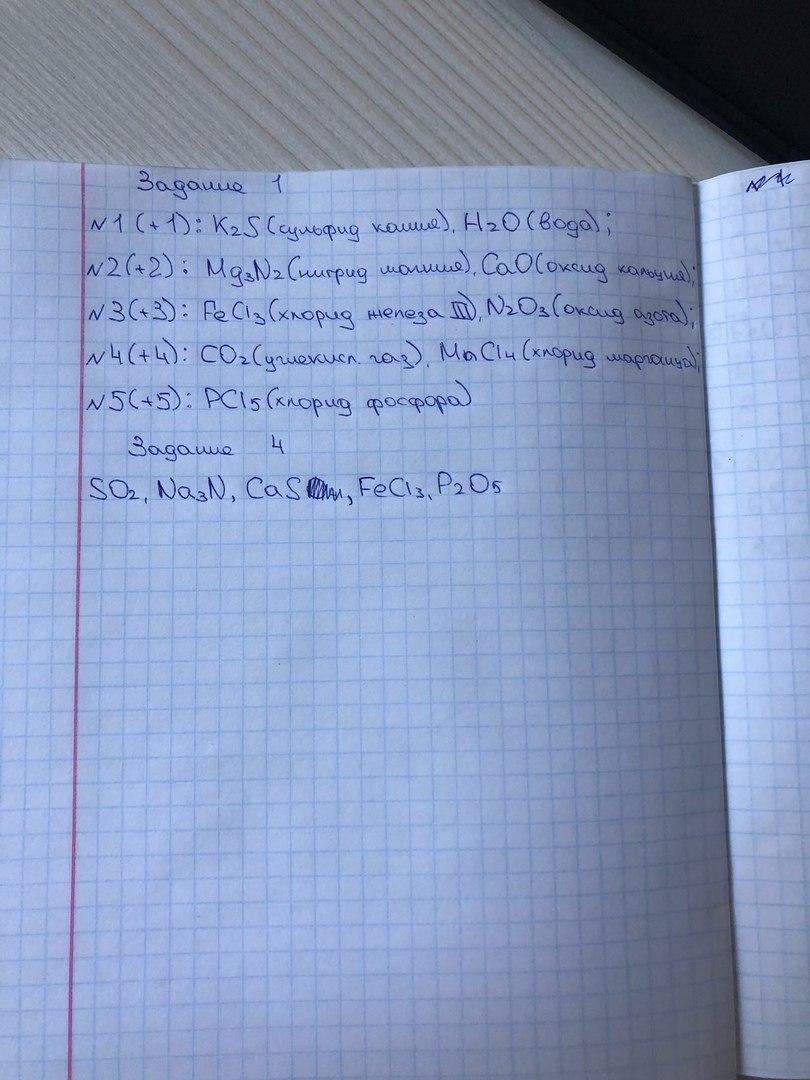 Задание 1
№1 (+1): K₂S (сульфид калия), H₂O (вода);
№2 (+2): Mg₃N₂ (нитрид магния), CaO (оксид кальция);
№3 (+3): FeCl₃ (хлорид железа III), N₂O₃ (оксид азота);
№4 (+4): CO₂ (углекисл. газ), MnCl₄ (хлорид марганца);
№5 (+5): PCl₅ (хлорид фосфора)
Задание 4
SO₂, Na₃N, CaS, FeCl₃, P₂O₅